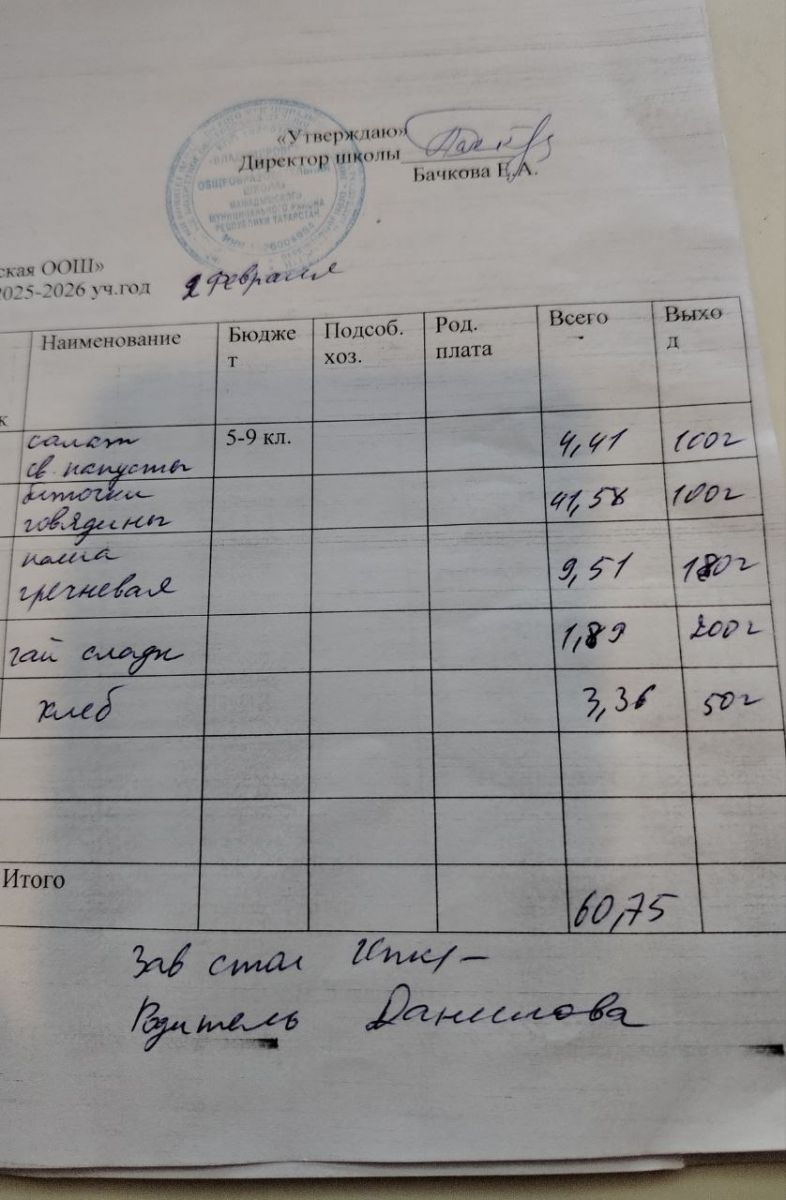 «Утверждаю»
Директор школы
Бачкова Е.А.
ОБЩЕОБРАЗ
ШКОЛА»
МАМАДЫШСКОГО
МУНИЦИПАЛЬНОГО РАЙОНА
РЕСПУБЛИКИ ТАТАРСТАН
ская ООШ»
2025-2026 уч.год 2 февраля
к Наименование Бюджет Подсоб. хоз. Род. плата Всего Выход
салат св. капусты 5-9 кл. 4,41 100г
биточки говядины 41,58 100г
каша гречневая 9,51 180г
чай сладк 1,89 200г
хлеб 3,36 50г
Итого 60,75
Зав стол
Родитель Данилова